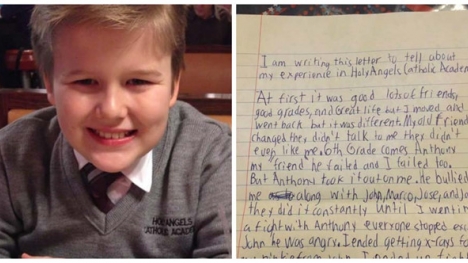 HOLY ANGELS
CATHOLIC ACADEMY
I am writing this letter to tell about
my experience in Holy Angels Catholic Academ
At first it was good lots of friends,
good grades, and Great life but I moved and
went back but it was different. My old friends
changed the, didn't talk to me they didn't
even like me. 6th Grade comes Anthony
my friend he failed and I failed too.
But Anthony took it out on me he bullied
me along with John, Marco, Jose, and Jo
they did it constantly until I went in
a fight with Anthony everyone stopped exc
John he was angry. I ended getting x-rays fo